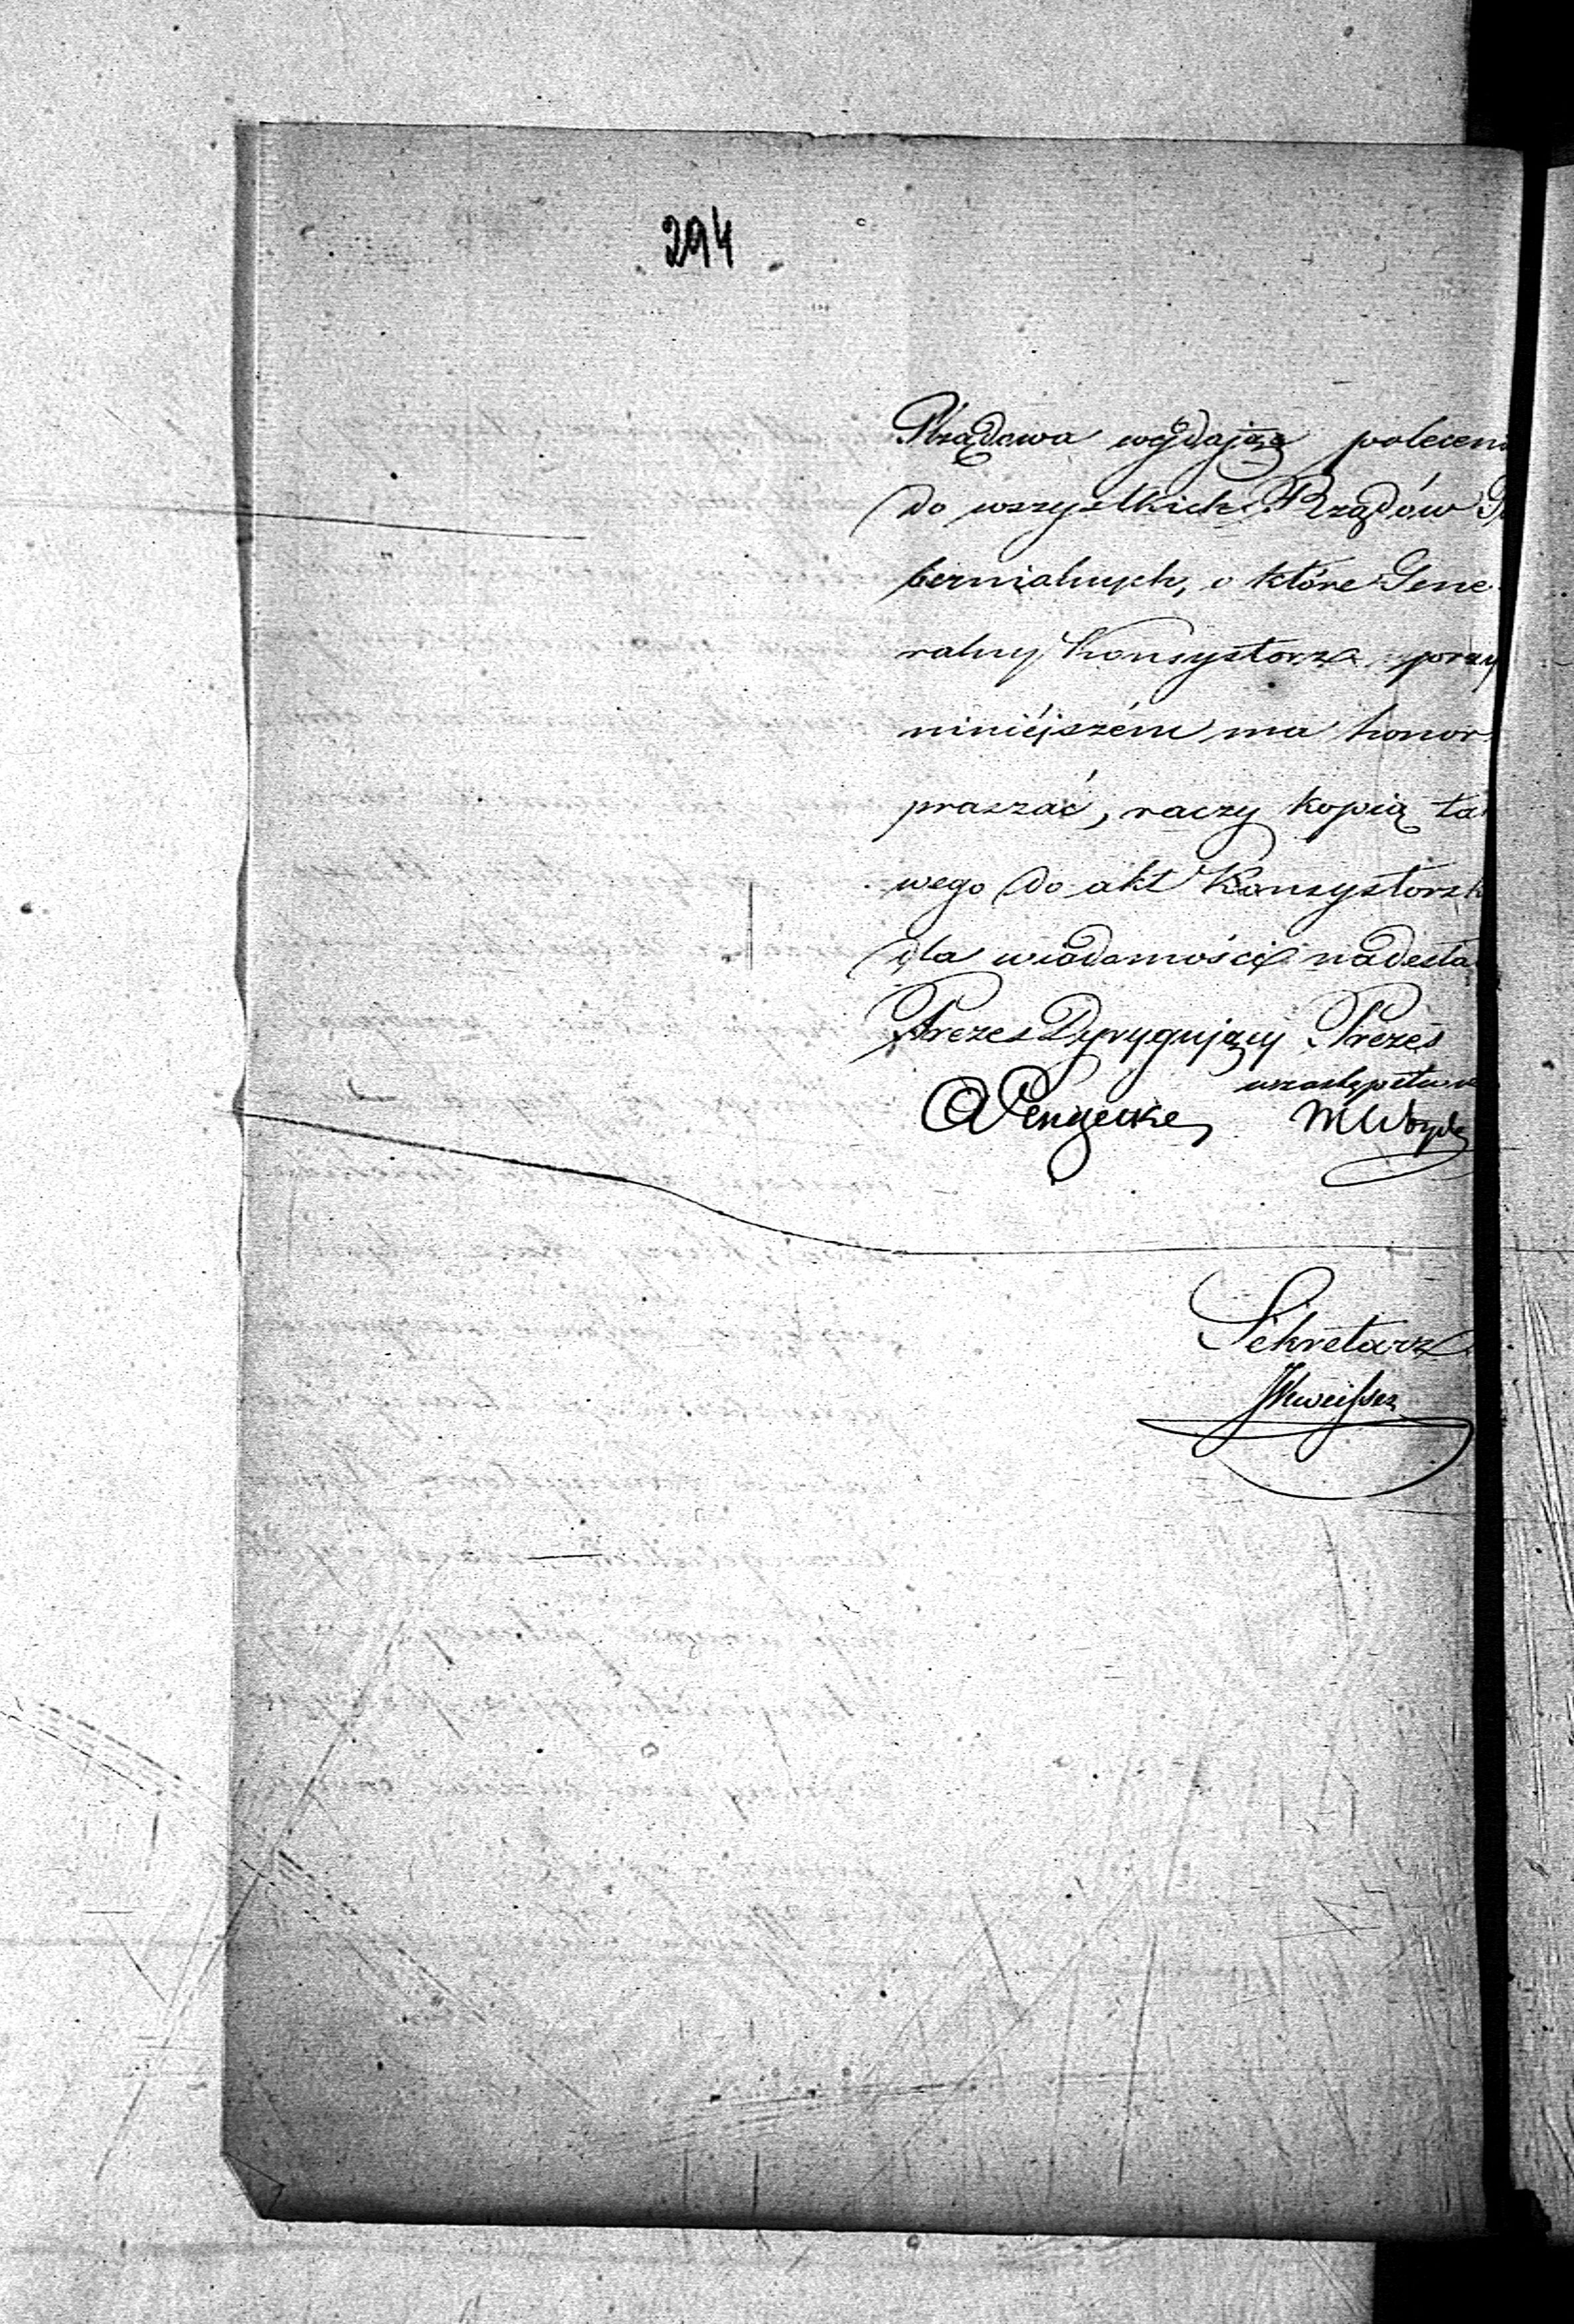 294
Rządowa wydając poleceni
do wszystkich Rządów Gu
bernialnych, o które Gene-
ralny Konsystorz przy
niniéjszém ma honor
praszać, raczy kopią ta
wego do akt Konsystorsk
dla wiadomości nadesła
Prezes Dyrygujący Prezes
w zastępstwie
Sekretarz